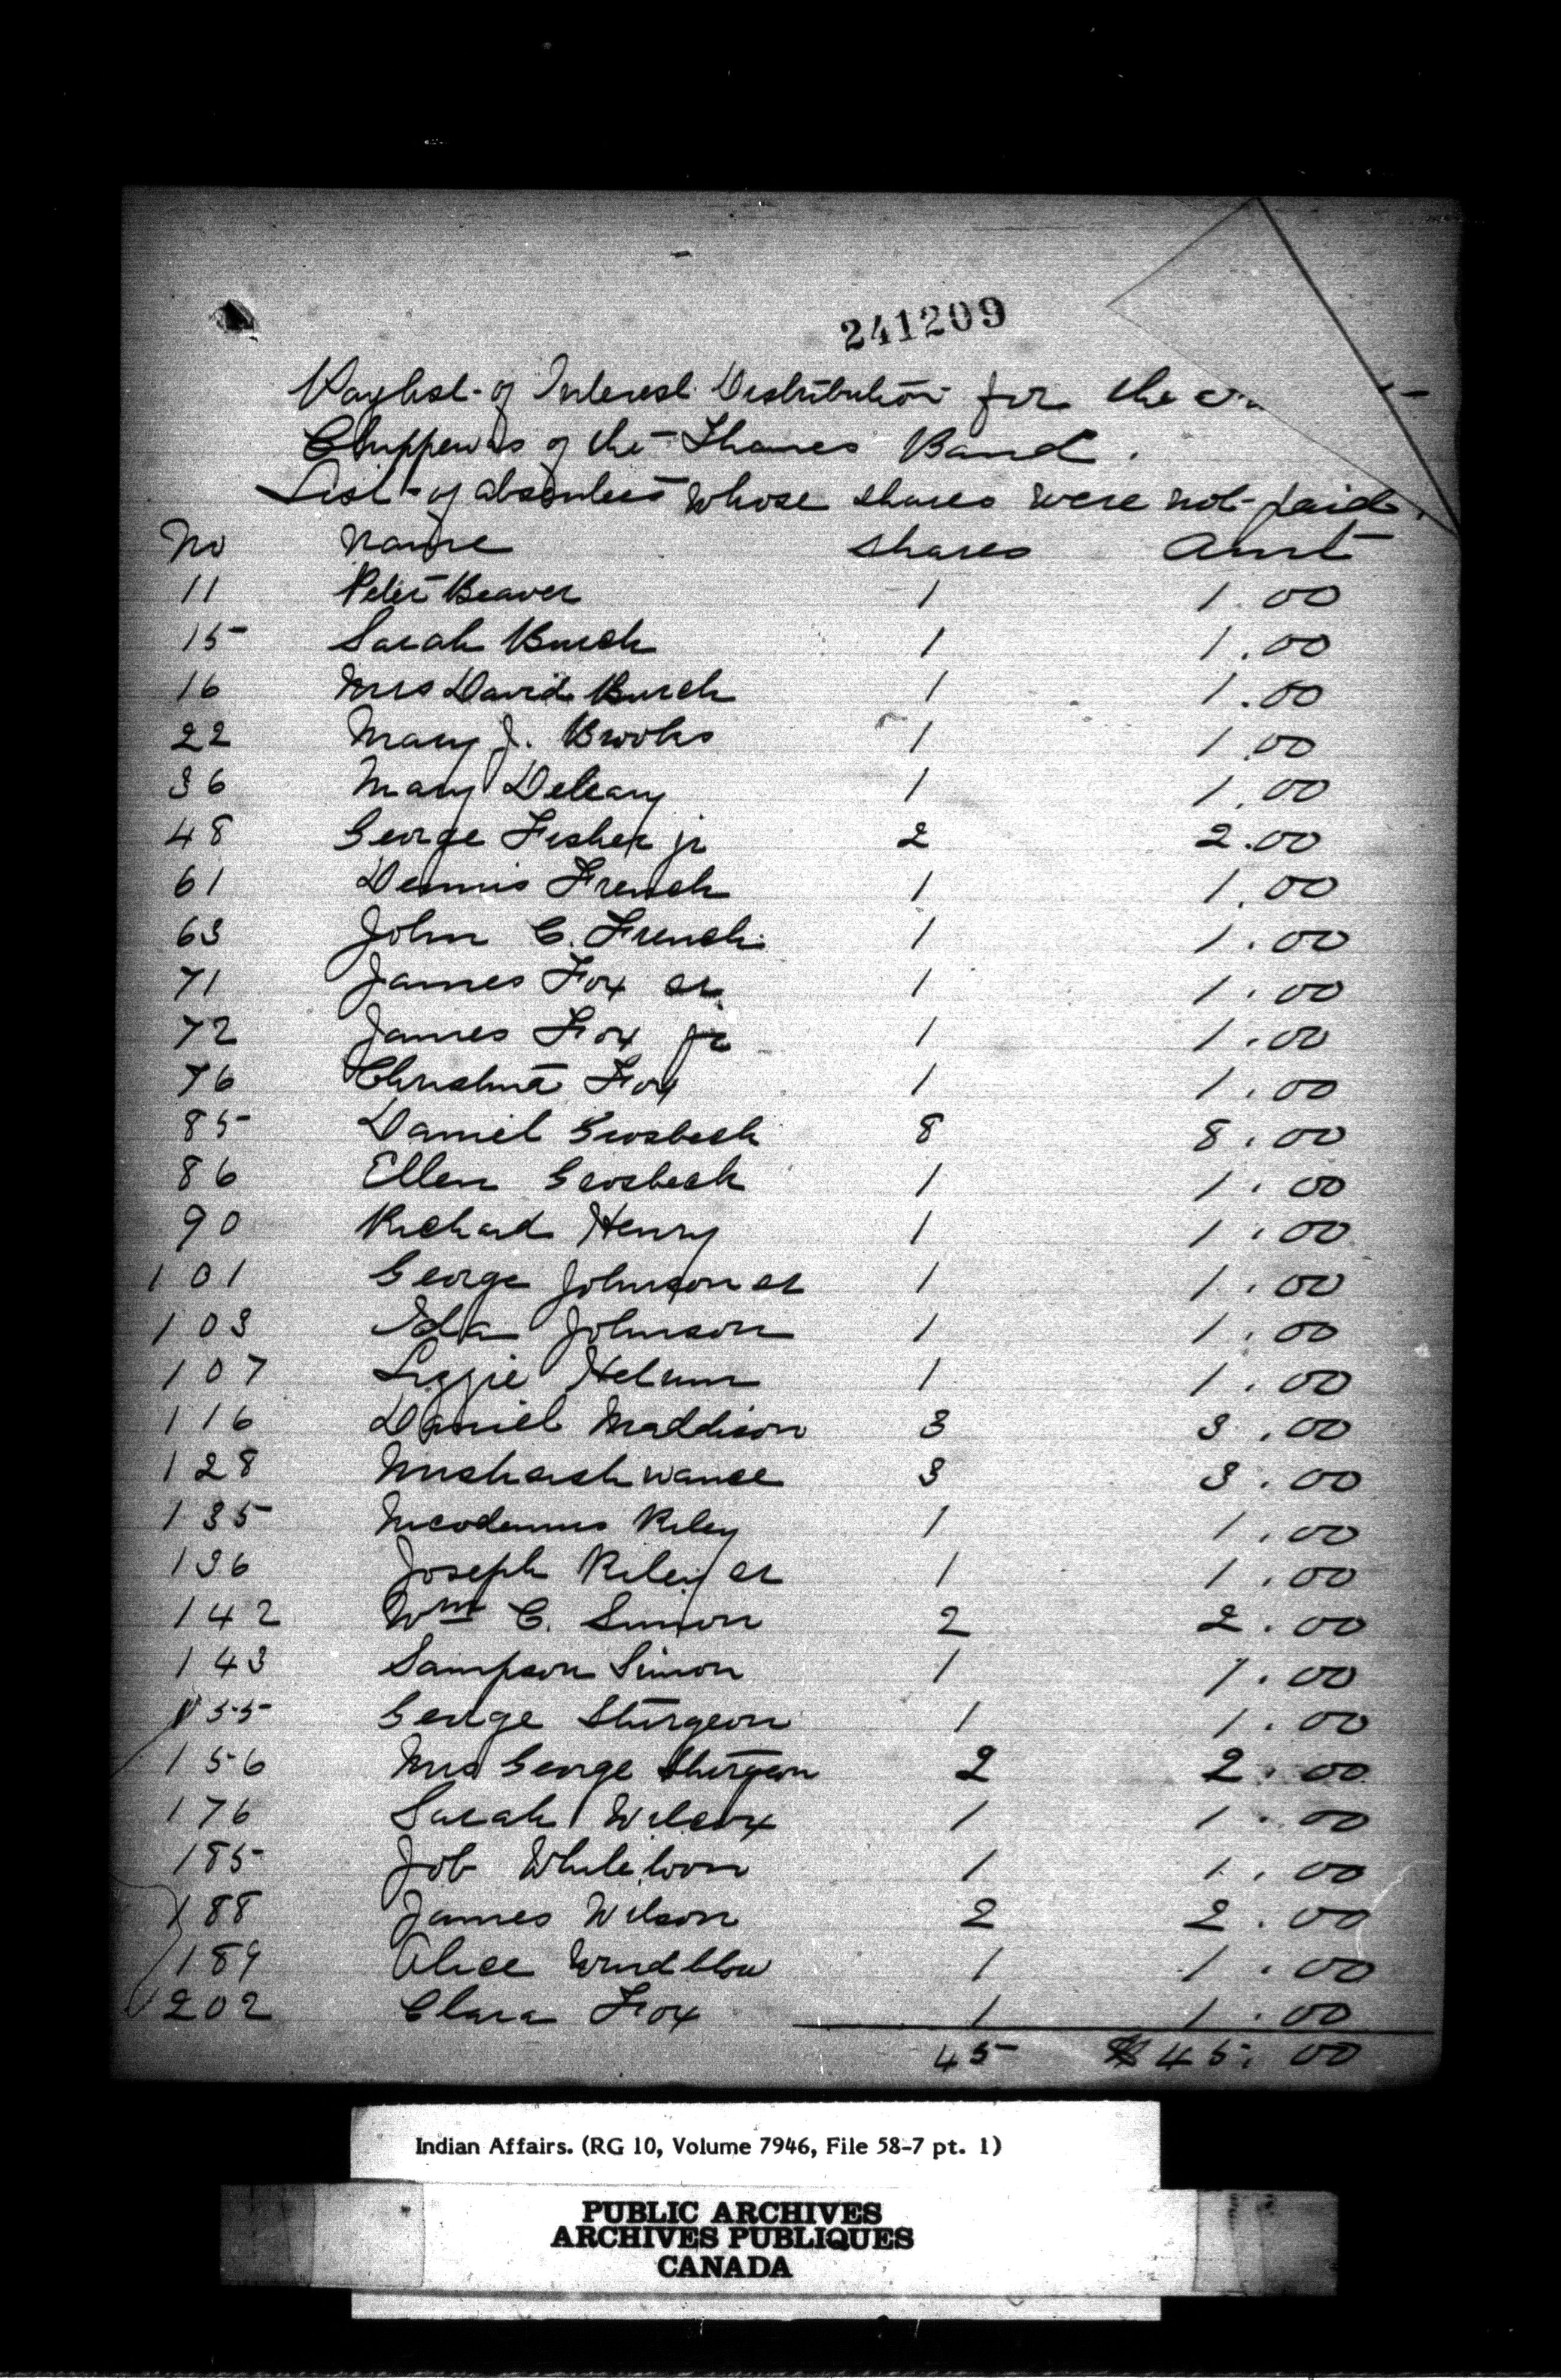 241209
Paylist of Interest Distribution for the
Chippewas of the Thames Band.
List of absentees whose shares were not paid.
No Name Shares Amt
11 Peter Beaver 1 1.00
15 Sarah Burch 1 1.00
16 Mrs David Burch 1 1.00
22 Mary J. Brooks 1 1.00
36 Mary Deleary 1 1.00
48 George Fisher jr 2 2.00
61 Dennis French 1 1.00
63 John C. French 1 1.00
71 James Fox sr 1 1.00
72 James Fox jr 1 1.00
76 Christina Fox 1 1.00
85 Daniel Grosbeck 8 8.00
86 Ellen Grosbeck 1 1.00
90 Richard Henry 1 1.00
101 George Johnson sr 1 1.00
103 Ida Johnson 1 1.00
107 Lizzie 1 1.00
116 Daniel Maddison 3 3.00
128 3 3.00
135 Nicodemus Riley 1 1.00
136 Joseph Riley sr 1 1.00
142 Wm C. Simon 2 2.00
143 Sampson Simon 1 1.00
155 George Sturgeon 1 1.00
156 Mrs George Sturgeon 2 2.00
176 Sarah Wilcox 1 1.00
185 Job Whiteloon 1 1.00
188 James Wilson 2 2.00
189 Alice Windblow 1 1.00
202 Clara Fox 1 1.00
45 $45.00
Indian Affairs. (RG 10, Volume 7946, File 58-7 pt. 1)
PUBLIC ARCHIVES
ARCHIVES PUBLIQUES
CANADA